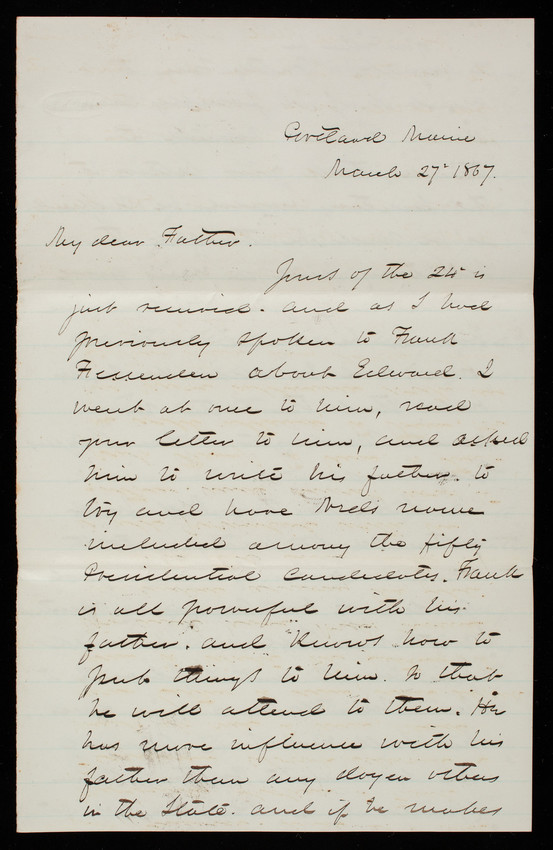 Portland Maine
March 27" 1867.
My dear Father.
Yours of the 24" is
just received. and as I had
previously spoken to Frank
Fessenden about Edward. I
went at once to him, read
your letter to him, and asked
him to write his father. to
try and have Neds name
included among the fifty
Presidential Candidates. Frank
is all powerful with his
father. and knows how to
put things to him. so that
he will attend to them. He
has more influence with his
father than any dozen others
in the State. and if he makes